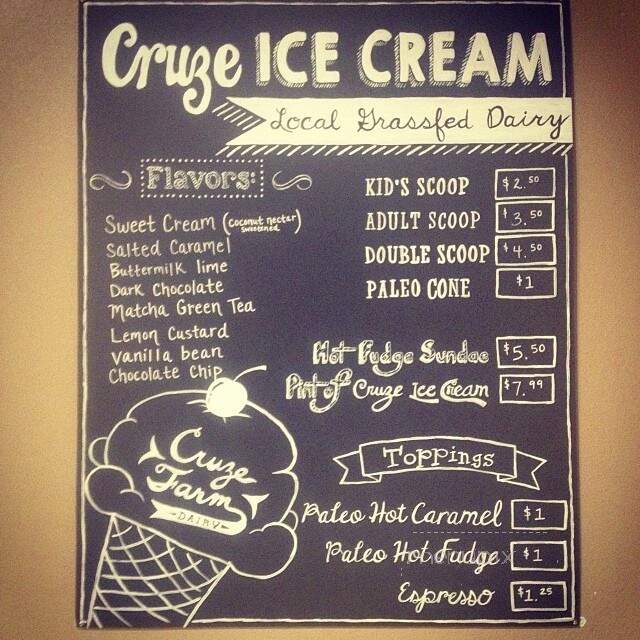 Cruze ICE CREAM
Local Grassfed Dairy
Flavors:
Sweet Cream (coconut nectar sweetened)
Salted Caramel
Buttermilk lime
Dark Chocolate
Matcha Green Tea
Lemon Custard
Vanilla bean
Chocolate Chip
KID'S SCOOP $2.50
ADULT SCOOP $3.50
DOUBLE SCOOP $4.50
PALEO CONE $1
Hot Fudge Sundae $5.50
Pint of Cruze Ice Cream $7.99
Toppings
Paleo Hot Caramel $1
Paleo Hot Fudge $1
Espresso $1.25
Cruze
Farm
DAIRY